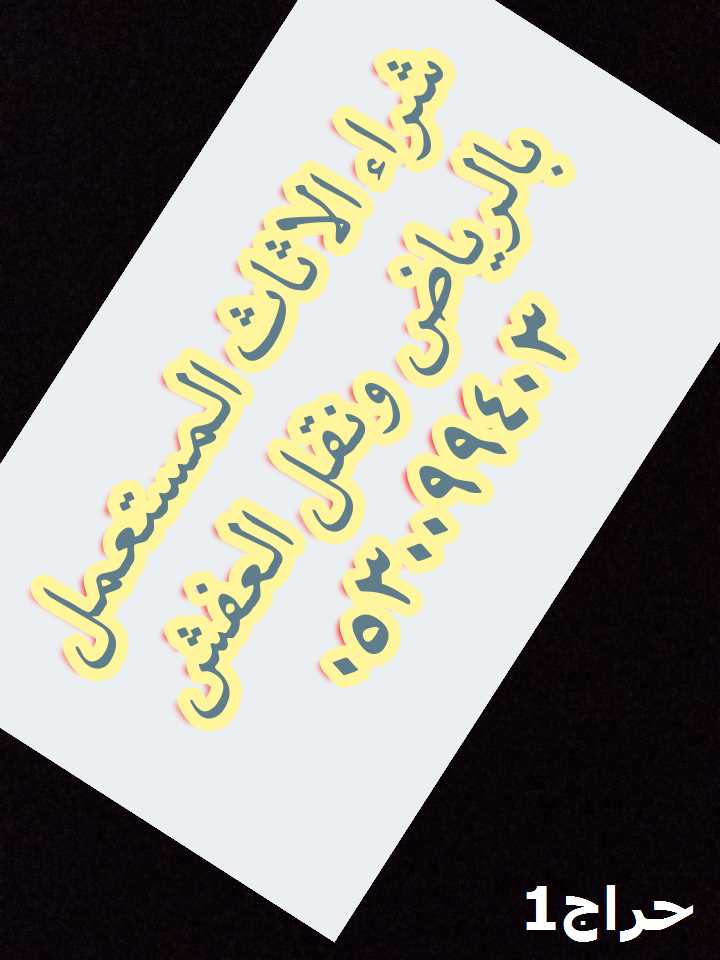 شراء الاثاث المستعمل
بالرياض ونقل العفش
٠٥٣٠٠٩٩٤٠٣
حراج1